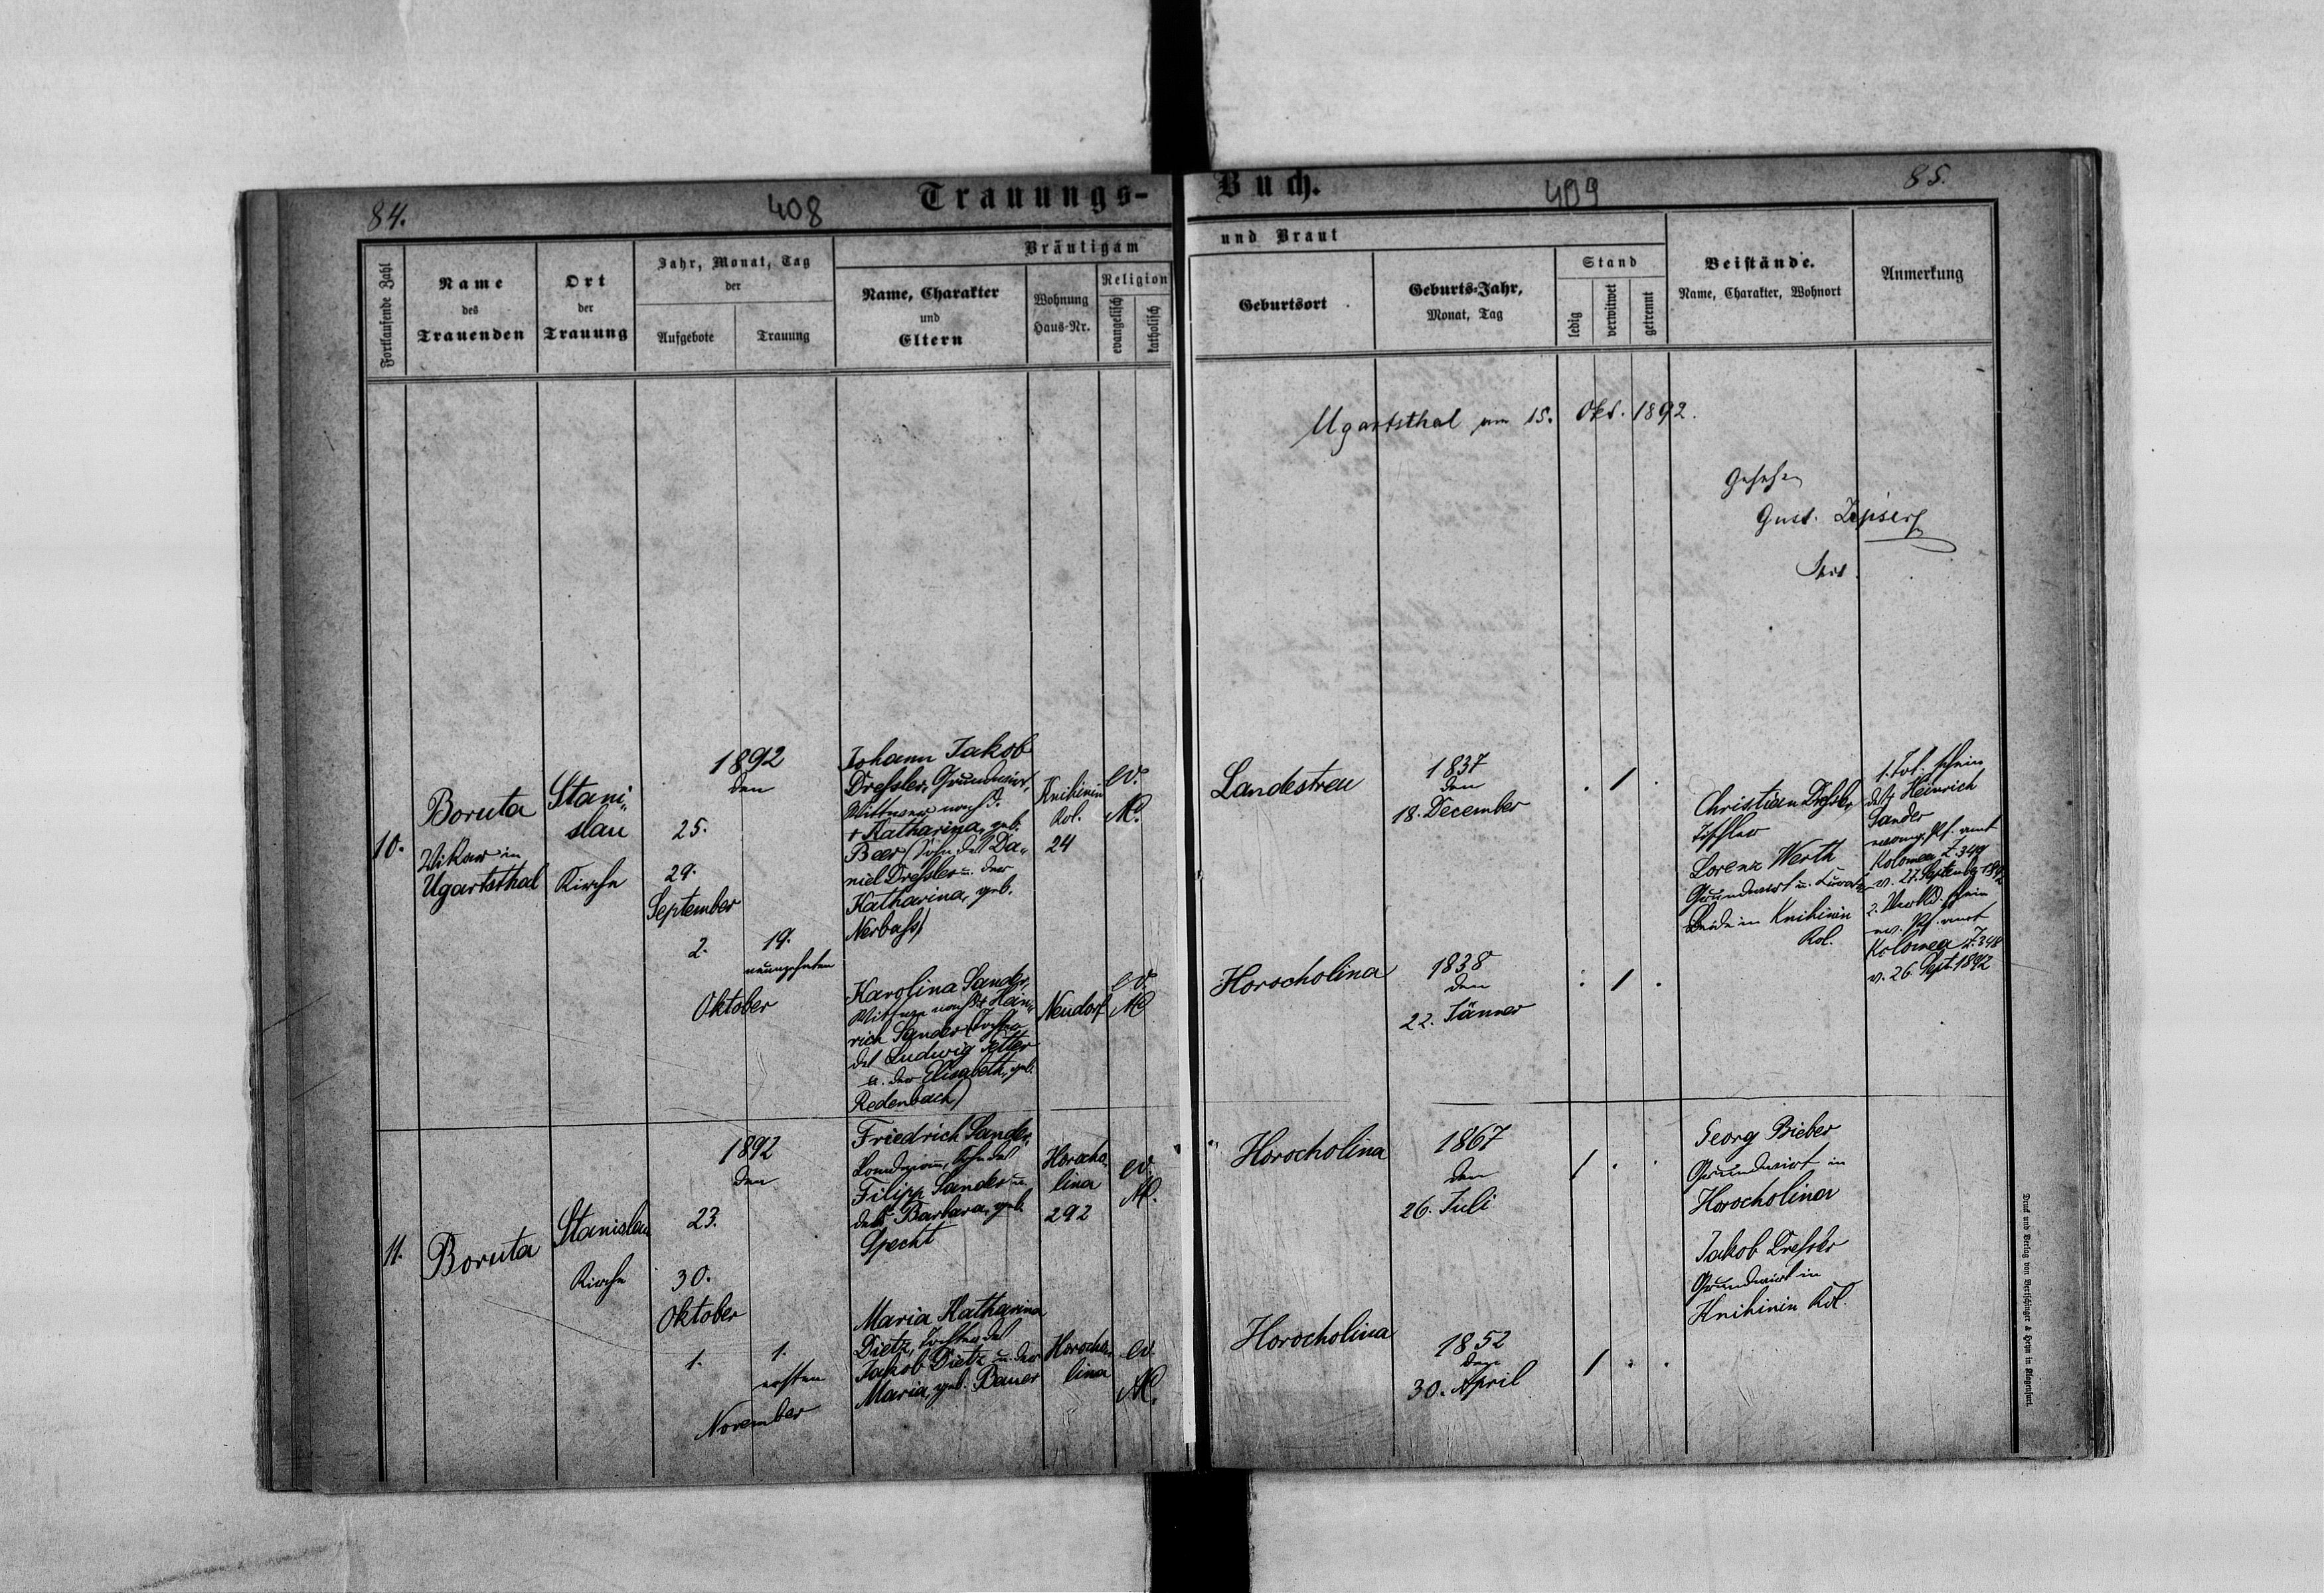 84.
408
Trauungs-
Buch.
409
85.
Fortlaufende Zahl
Name
des
Trauenden
Ort
der
Trauung
Jahr, Monat, Tag
der
Aufgebote
Trauung
Bräutigam
Name, Charakter
und
Eltern
Wohnung
Haus-Nr.
Religion
evangelisch
katholisch
und Braut
Geburtsort
Geburts-Jahr,
Monat, Tag
Stand
ledig
verwitwet
getrennt
Beistände.
Name, Charakter, Wohnort
Anmerkung
Ugartsthal am 15. Okt. 1892.
Gesehen
Gust.
10.
Boruta
Vikar in
Ugartsthal
Stani-
slau
Kirche
1892
den
25.
29.
September
2.
19.
neunzehnten
Oktober
Johann Jakob
Dreßler, Grundwirt,
Wittwer nach d.
+ Katharina, geb.
Beer (Sohn des Da-
niel Dreßler u. der
Katharina, geb.
Nerbaß)
Knihinin
Kol.
24
ev.
A.C.
Landestreu
1837
den
18. December
Christian Dreßler
Tischler
Lorenz Werth
Grundwirt u. Kurator
Beide in Knihinin
Kol.
1. Tot. schein
des + Heinrich
Sander
evang. Pf. amt
Kolomea Z. 349
v. 27. September 1892
2. Verkd. schein
ev. Pf. amt
Kolomea Z. 348
v. 26. Sept. 1892
Karolina Sander,
Wittwe nach d. + Hein-
rich Sander (Tochter
des Ludwig Petter
u. der Elisabeth, geb.
Redenbach)
Neudorf
ev.
A.C.
Horocholina
1838
den
22. Jänner
11.
Boruta
Stanislau
Kirche
1892
den
23.
30.
Oktober
1.
1.
ersten
November
Friedrich Sander,
Landmann, Sohn des
Filipp Sander u.
der Barbara, geb.
Specht
Horocho-
lina
292
ev.
A.C.
Horocholina
1867
den
26. Juli
Georg Bieber
Grundwirt in
Horocholina
Jakob Dreßler
Grundwirt in
Knihinin Kol.
Maria Katharina
Dietz, Tochter des
Jakob Dietz u. der
Maria, geb. Bauer
Horocho-
lina
ev.
A.C.
Horocholina
1852
den
30. April
Druck und Verlag von Bertschinger & Heyn in Klagenfurt.